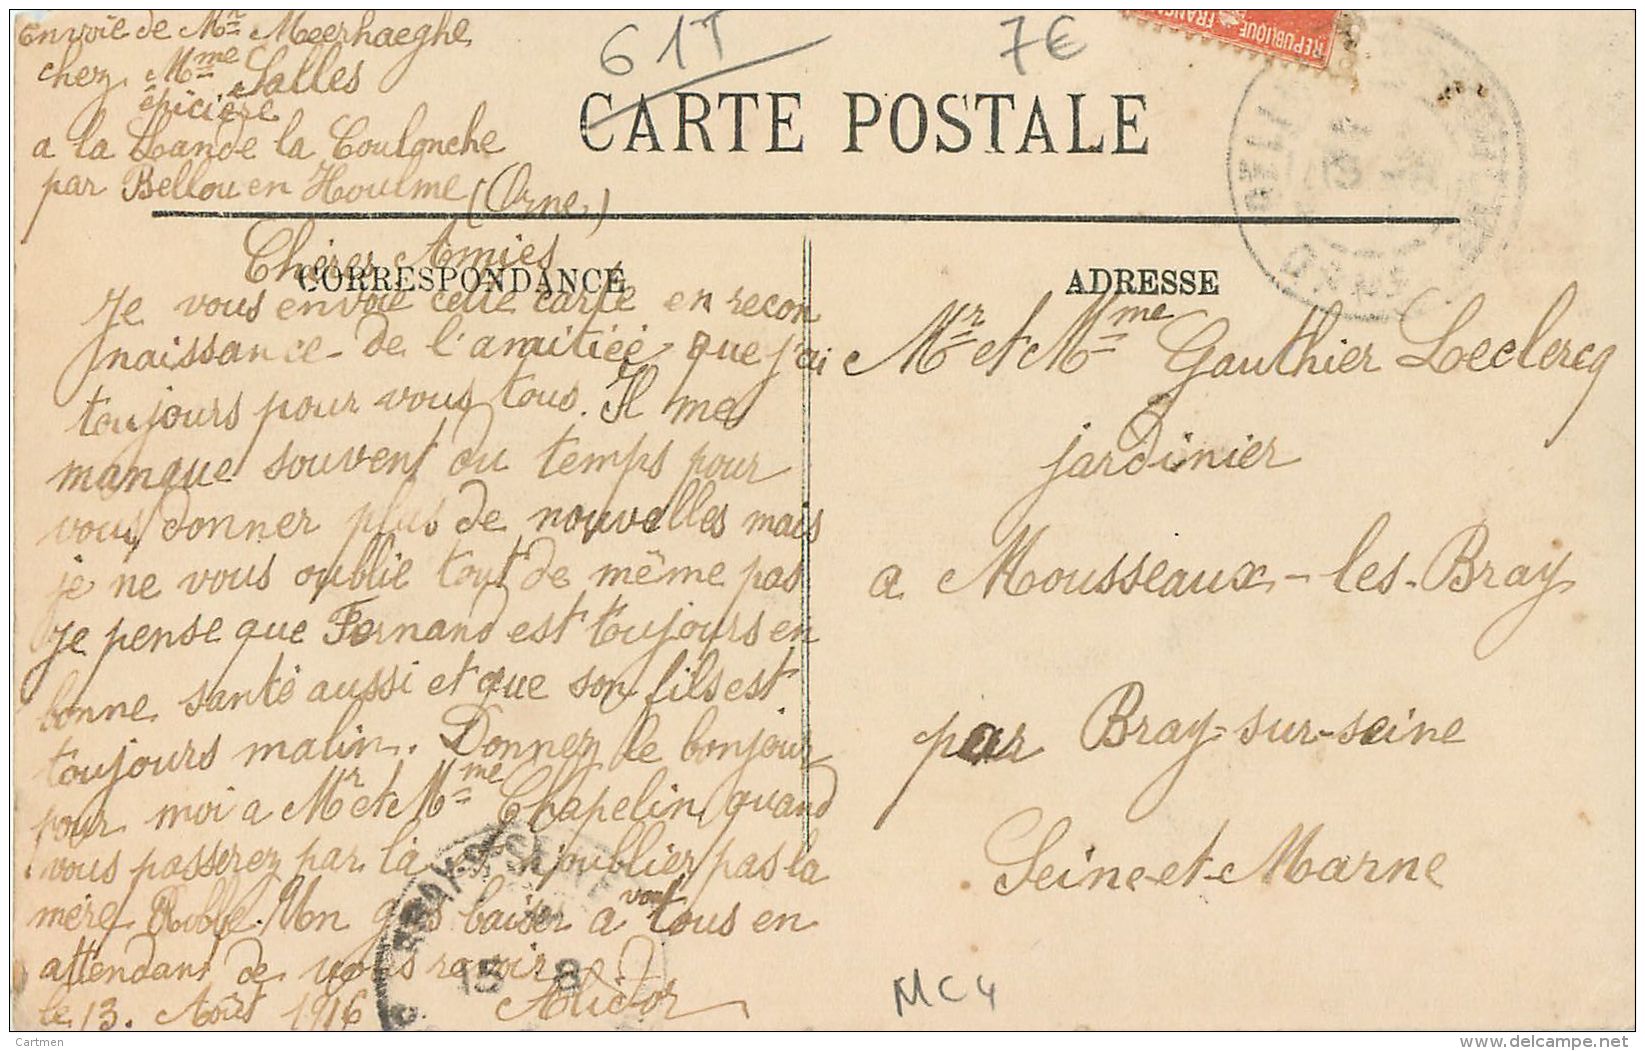 Envoie de Mr Meerhaeghe
chez Mme Salles
épicière
a la Lande la Coulonche
par Bellou en Houlme (Orne)
61T
7€
REPUBLIQUE FRANÇA
CARTE POSTALE
CORRESPONDANCE
Chéres Amies
Je vous envoie cette carte en recon
naissance de l'amitiéé que j'ai
toujours pour vous tous. Il me
manque souvent du temps pour
vous donner plus de nouvelles mais
je ne vous oublie tout de même pas
Je pense que Fernand est toujours en
bonne santé aussi et que son fils est
toujours malin. Donnez le bonjour
pour moi a Mr et Mme Chapelin quand
vous passerez par là n'oublier pas la
mère Un gros baiser a vous tous en
attendant de vous revoir
le 13. Août 1916 Alidor
BRAY-S-SEINE
15 8
ADRESSE
Mr et Mme Gauthier Leclercq
jardinier
a Mousseaux-les-Bray
par Bray-sur-seine
Seine-et-Marne
MC4
ORNE
Cartmen
www.delcampe.net